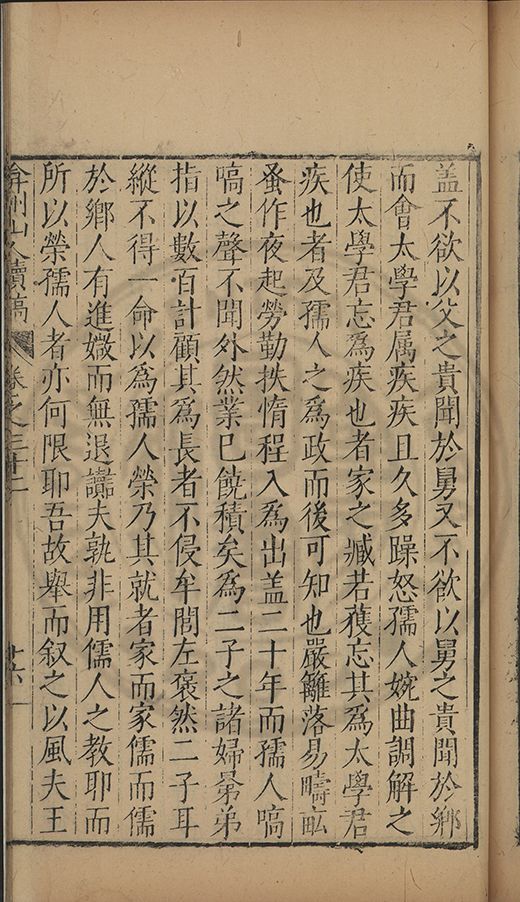 蓋不欲以父之貴聞於舅又不欲以舅之貴聞於鄉
而會太學君属疾疾且久多躁怒孺人婉曲調解之
使太學君忘為疾也者家之臧若獲忘其為太學君
疾也者及孺人之為政而後可知也嚴籬落易疇畝
蚤作夜起勞勤抶惰程入為出盖二十年而孺人嗃
嗃之聲不聞外然業已饒積矣為二子之諸婦晜弟
指以數百計顧其為長者不侵牟閭左褎然二子耳
縱不得一命以為孺人榮乃其就者家而家儒而儒
於鄉人有進嫩而無退讟夫孰非用儒人之教耶而
所以榮孺人者亦何限耶吾故舉而叙之以風夫王
弇州山人續稿 卷之三十二 十六